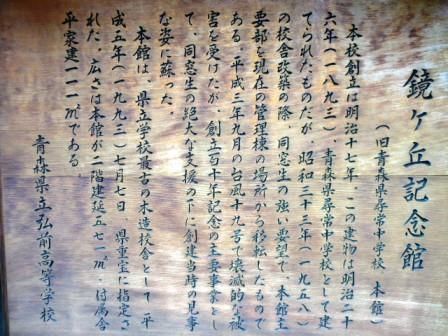 鏡ヶ丘記念館
（旧青森県尋常中学校　本館）
本校創立は明治十七年、この建物は明治二十
六年（一八九三）青森県尋常中学校として建
てられたものだが、昭和三十三年（一九五八）
の校舎改築の際、同窓生の強い要望で、本館主
要部を現在の管理棟の場所から移転したもので
ある。平成三年九月の台風十九号で壊滅的な被
害を受けたが、創立百十年記念の主要事業とし
て、同窓生の絶大な支援の下に創建当時の見事
な姿に蘇った。
本館は、県立学校最古の木造校舎として、平
成五年（一九九三）七月七日、県重宝に指定さ
れた。広さは本館が二階建延五七一㎡、付属舎
平家建一一一㎡である。
青森県立弘前高等学校